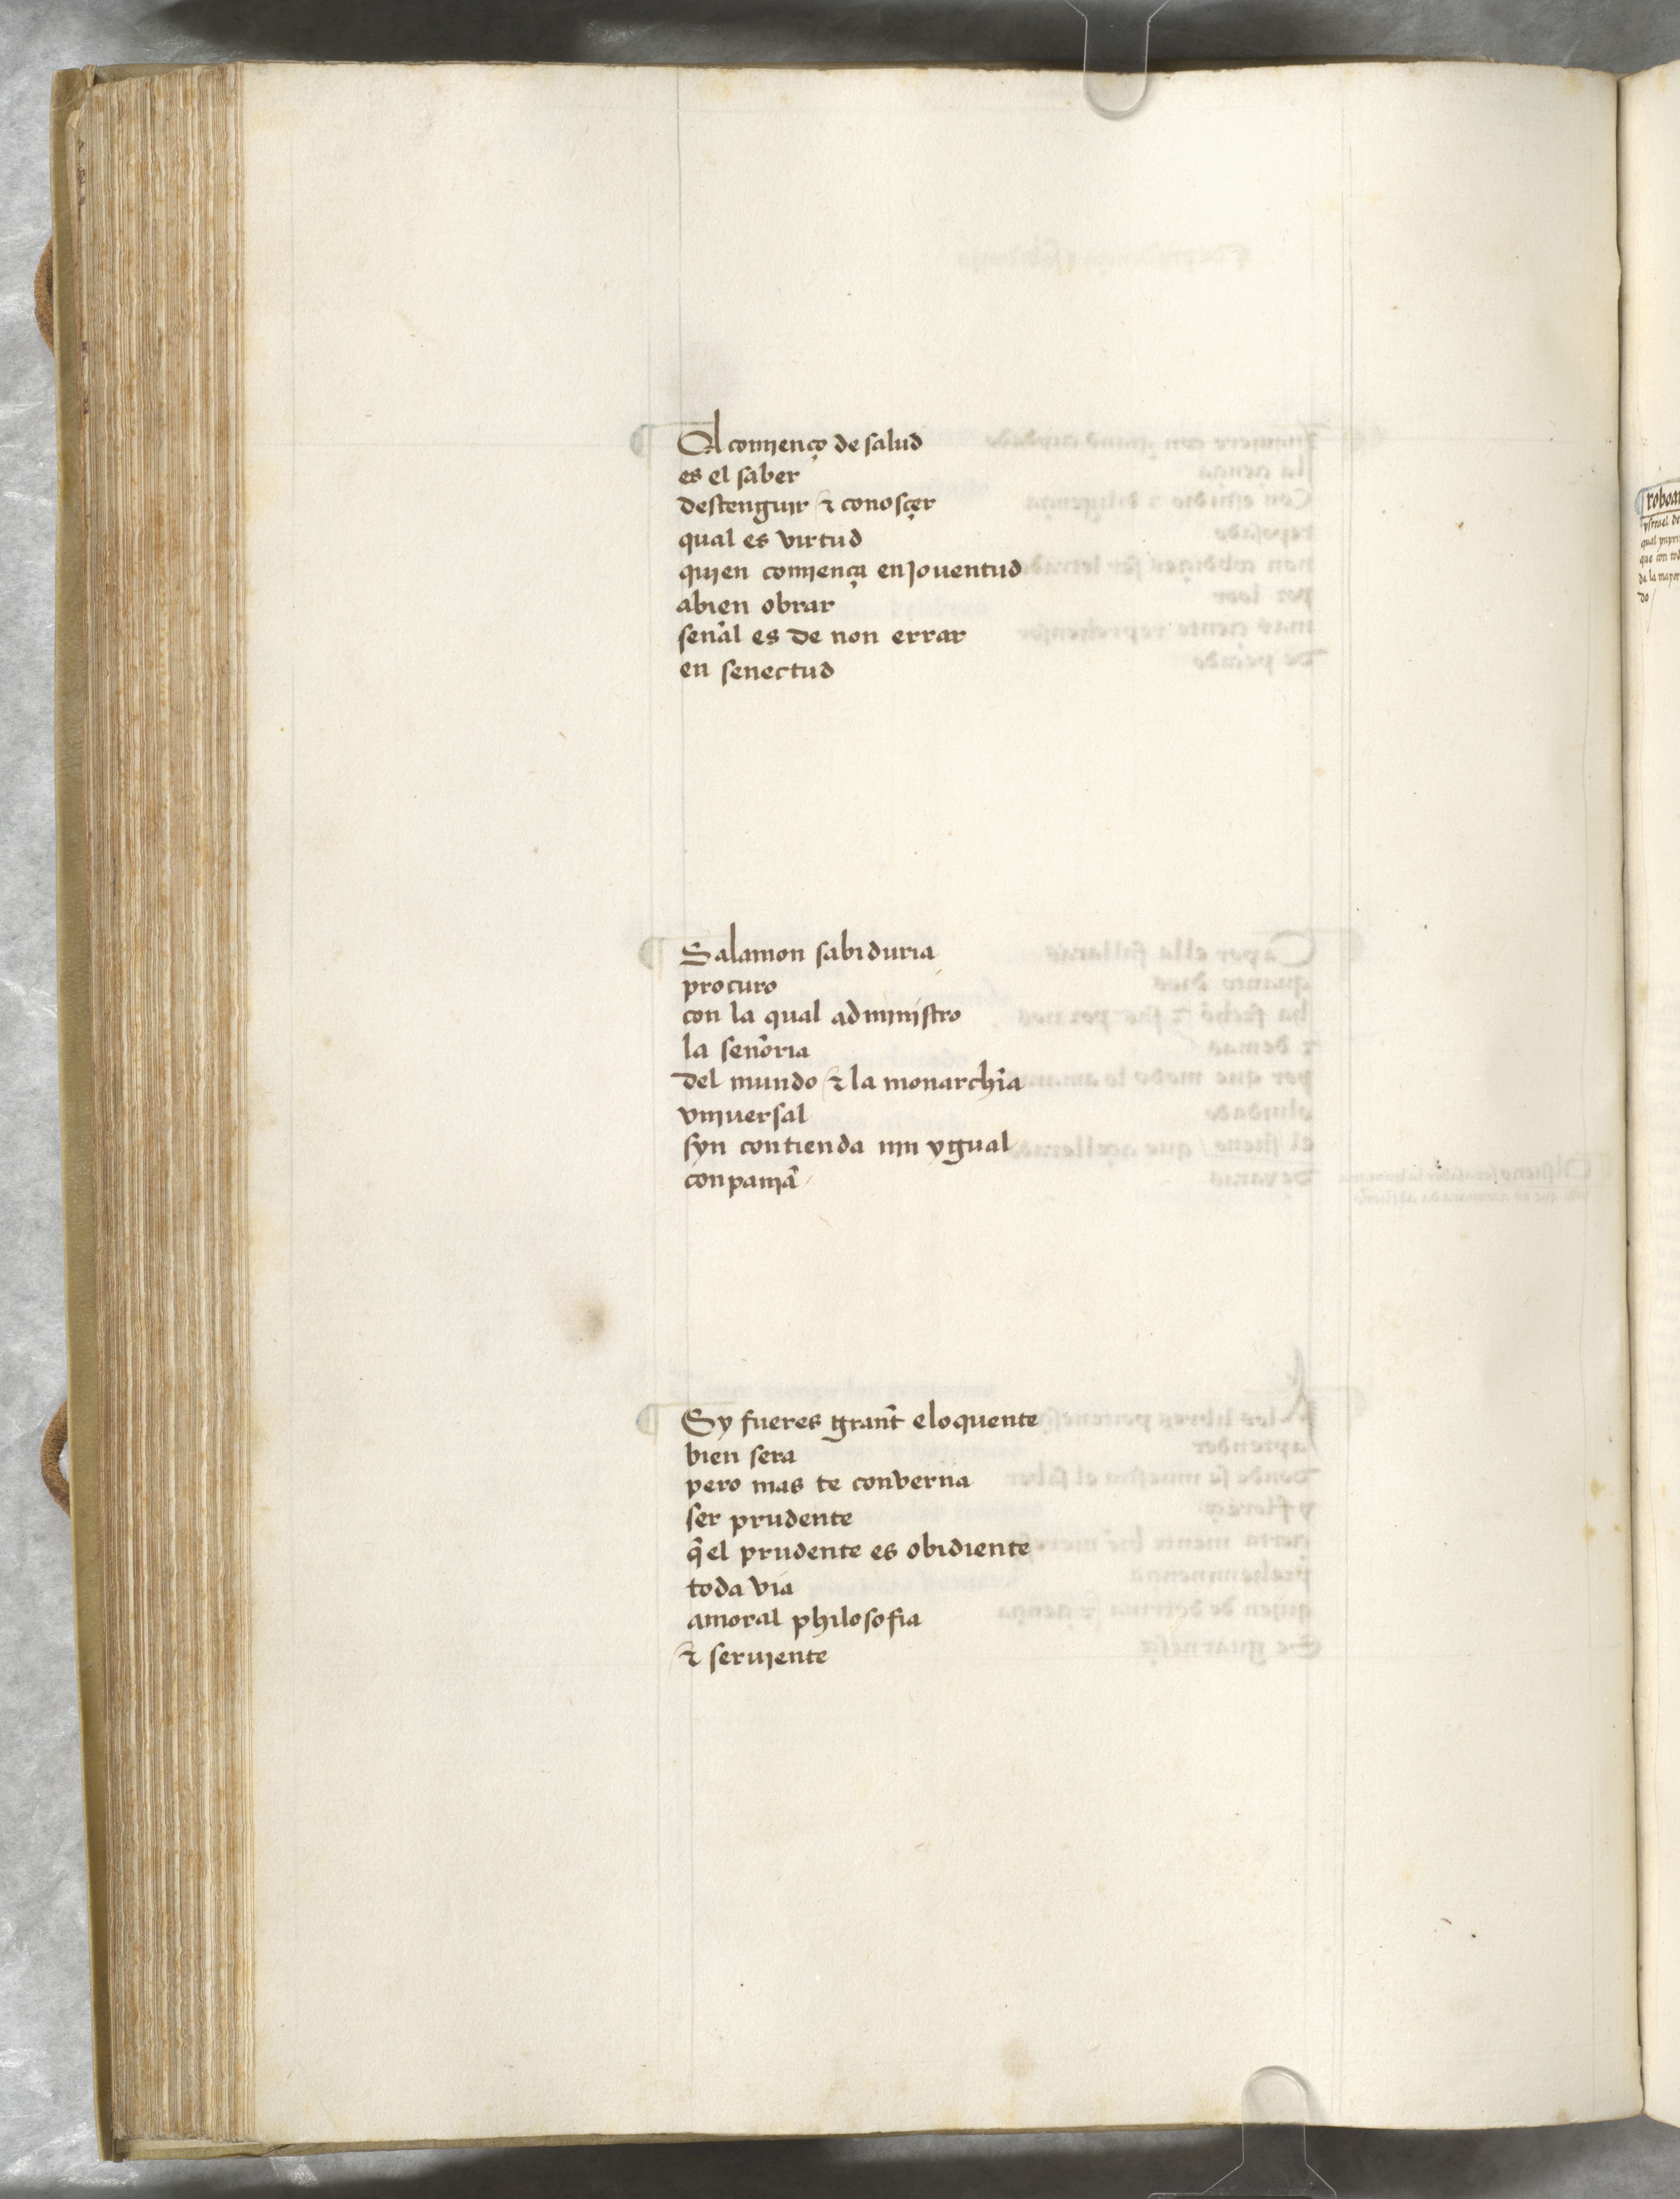 El comjenço de salud
es el saber
destenguir & conosçer
qual es virtud
qujen comjença en jouentud
abien obrar
señal es de non errar
en senectud
Salamon sabiduria
procuro
con la qual admjnistro
la señoria
del mundo & la monarchia
vnjuersal
syn contienda njn ygual
conpanjã
Sy fueres grant eloquente
bien sera
pero mas te converna
ser prudente
q̃ el prudente es obidiente
toda via
amoral philosofia
& serujente